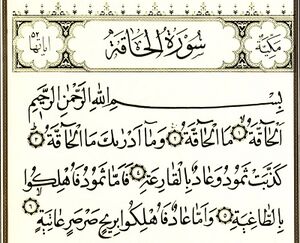 مكية
سورة الحاقة
آياتها ٥٢
بسم الله الرحمن الرحيم
الحاقة ١ ما الحاقة ٢ وما أدراك ما الحاقة ٣
كذبت ثمود وعاد بالقارعة ٤ فأما ثمود فأهلكوا
بالطاغية ٥ وأما عاد فأهلكوا بريح صرصر عاتية ٦